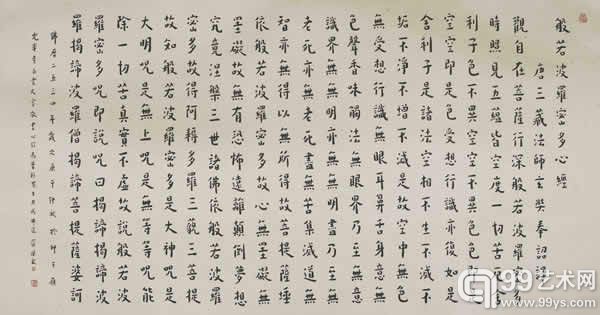 般若波羅密多心經
唐三藏法師玄奘奉詔譯
觀自在菩薩行深般若波羅密多
時照見五蘊皆空度一切苦厄舍
利子色不異空空不異色色即是
空空即是色受想行識亦復如是
舍利子是諸法空相不生不滅不
垢不淨不增不減是故空中無色
無受想行識無眼耳鼻舌身意無
色聲香味觸法無眼界乃至無意
識界無無明亦無無明盡乃至無
老死亦無老死盡無苦集滅道無
智亦無得以無所得故菩提薩埵
依般若波羅密多故心無罣礙無
罣礙故無有恐怖遠離顛倒夢想
究竟涅槃三世諸佛依般若波羅
密多故得阿耨多羅三藐三菩提
故知般若波羅密多是大神咒是
大明咒是無上咒是無等等咒能
除一切苦真實不虛故說般若波
羅密多咒即說咒曰揭諦揭諦波
羅揭諦波羅僧揭諦菩提薩婆訶
佛曆二五三四年歲次庚午仲秋
99艺术网
www.99ys.com